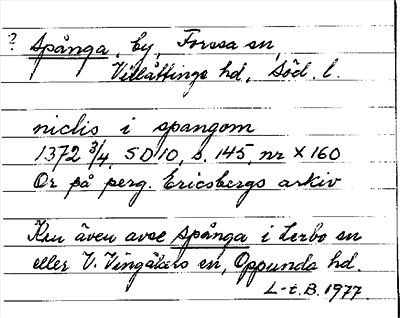 ? Spånga, by, Forssa sn,
Villåttinge hd, Söd. l.
niclis i spangom
1372 3/4, SD 10, s. 145, nr X 160
Or på perg. Ericsbergs arkiv
Kan även avse Spånga i Lerbo sn
eller V. Vingåkers sn, Oppunda hd.
L-t. B. 1977